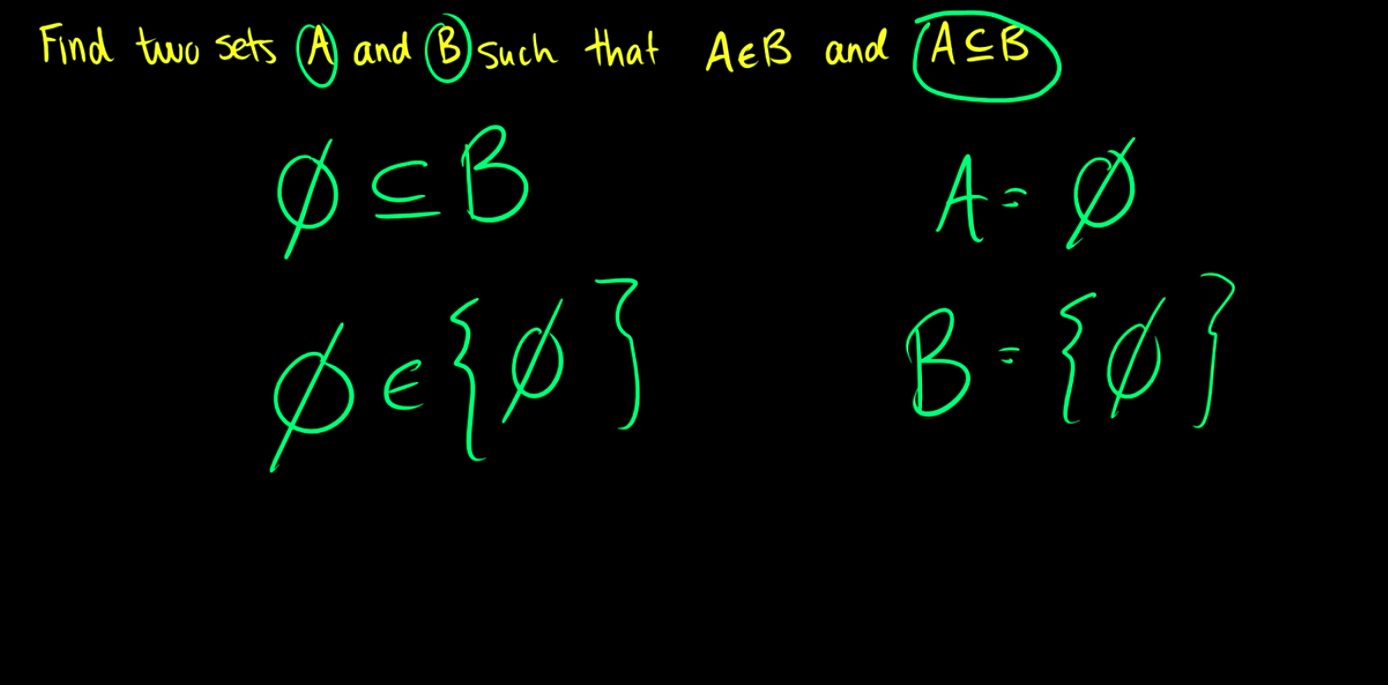 Find two sets A and B such that A∈B and A⊆B
∅ ⊆ B
A = ∅
∅ ∈ {∅}
B = {∅}